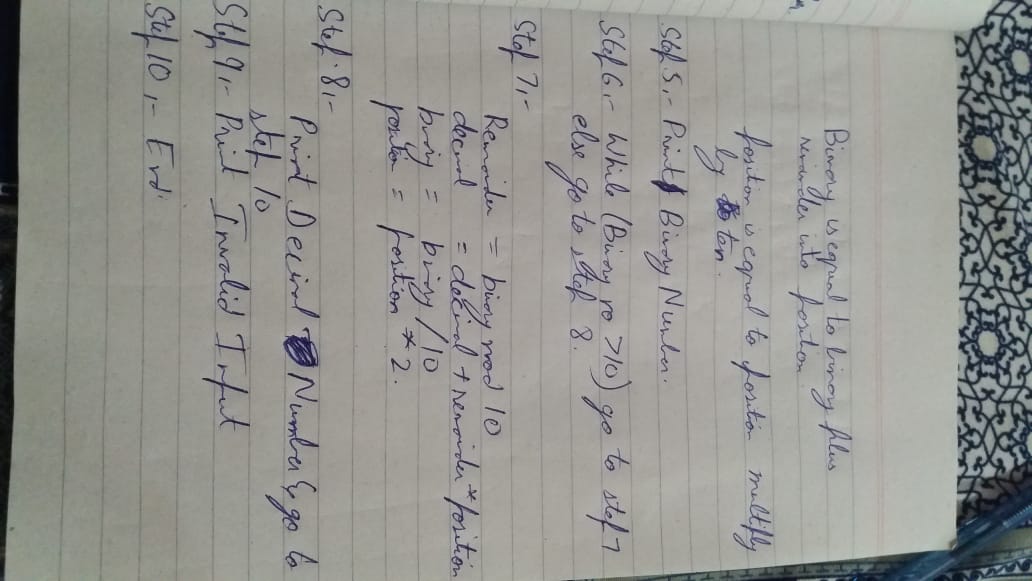 Binary is equal to binary plus
remainder into position
position is equal to position multiply
by ten.
Step 5,- Print Binary Number.
Step 6,- While (Binary no >10) go to step 7
else go to step 8.
Step 7,-
Remainder = binary mod 10
decimal = decimal + remainder * position
binary = binary / 10
position = position * 2.
Step 8,-
Print Decimal Number & go to
step 10
Step 9,- Print Invalid Input
Step 10,- End.